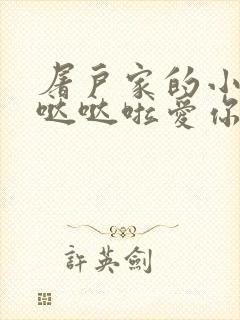 屠戶家的小
哒哒啦爱你
許英劍